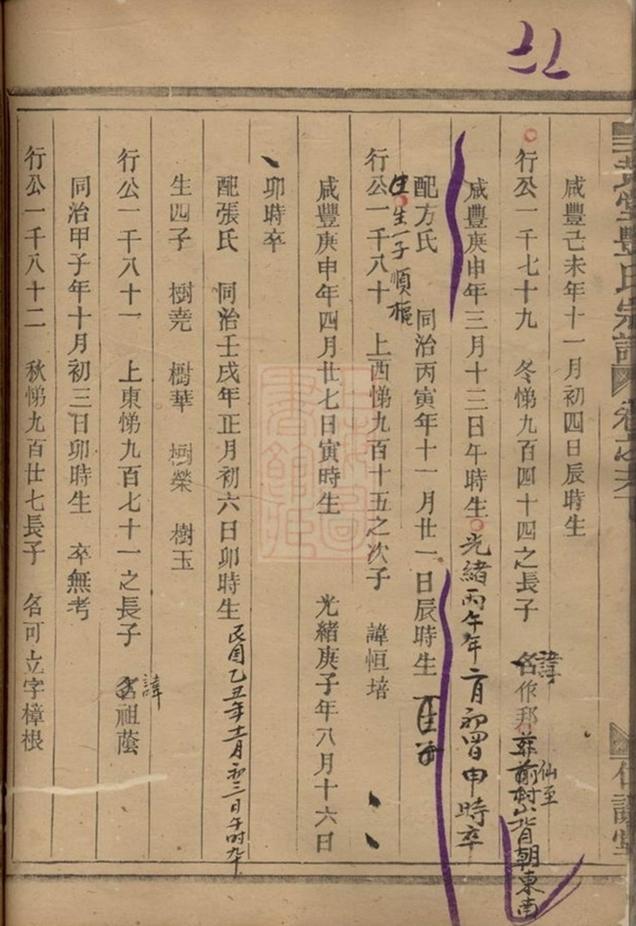 咸豐己未年十一月初四日辰時生
行公一千七十九 冬悌九百四十四之長子 諱名作邦 葬前村山背朝東南
咸豐庚申年三月十三日午時生 光緒丙午年二月初四日申時卒
配方氏 同治丙寅年十一月廿一日辰時生
生一子順樞
行公一千八十 上西悌九百十五之次子 諱恒培
咸豐庚申年四月廿七日寅時生 光緒庚子年八月十六日
卯時卒
配張氏 同治壬戌年正月初六日卯時生 民國乙丑年十一月初三日午時卒
生四子 樹堯 樹華 樹榮 樹玉
行公一千八十一 上東悌九百七十一之長子 諱名祖蔭
同治甲子年十月初三日卯時生 卒無考
行公一千八十二 秋悌九百廿七長子 名可立字樟根